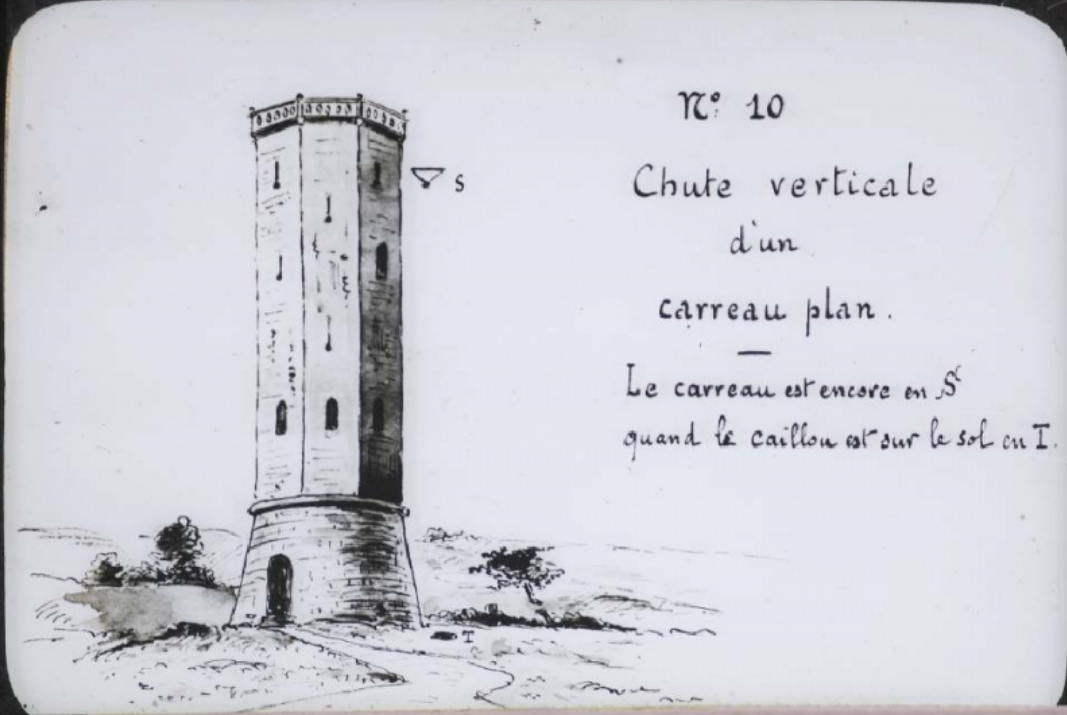 S
T
N° 10
Chute verticale
d'un
carreau plan.
Le carreau est encore en S
quand le caillou est sur le sol en T.